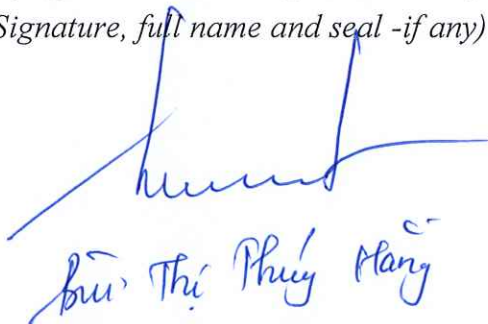 Signature, full name and seal -if any)
Bùi Thị Thúy Hằng